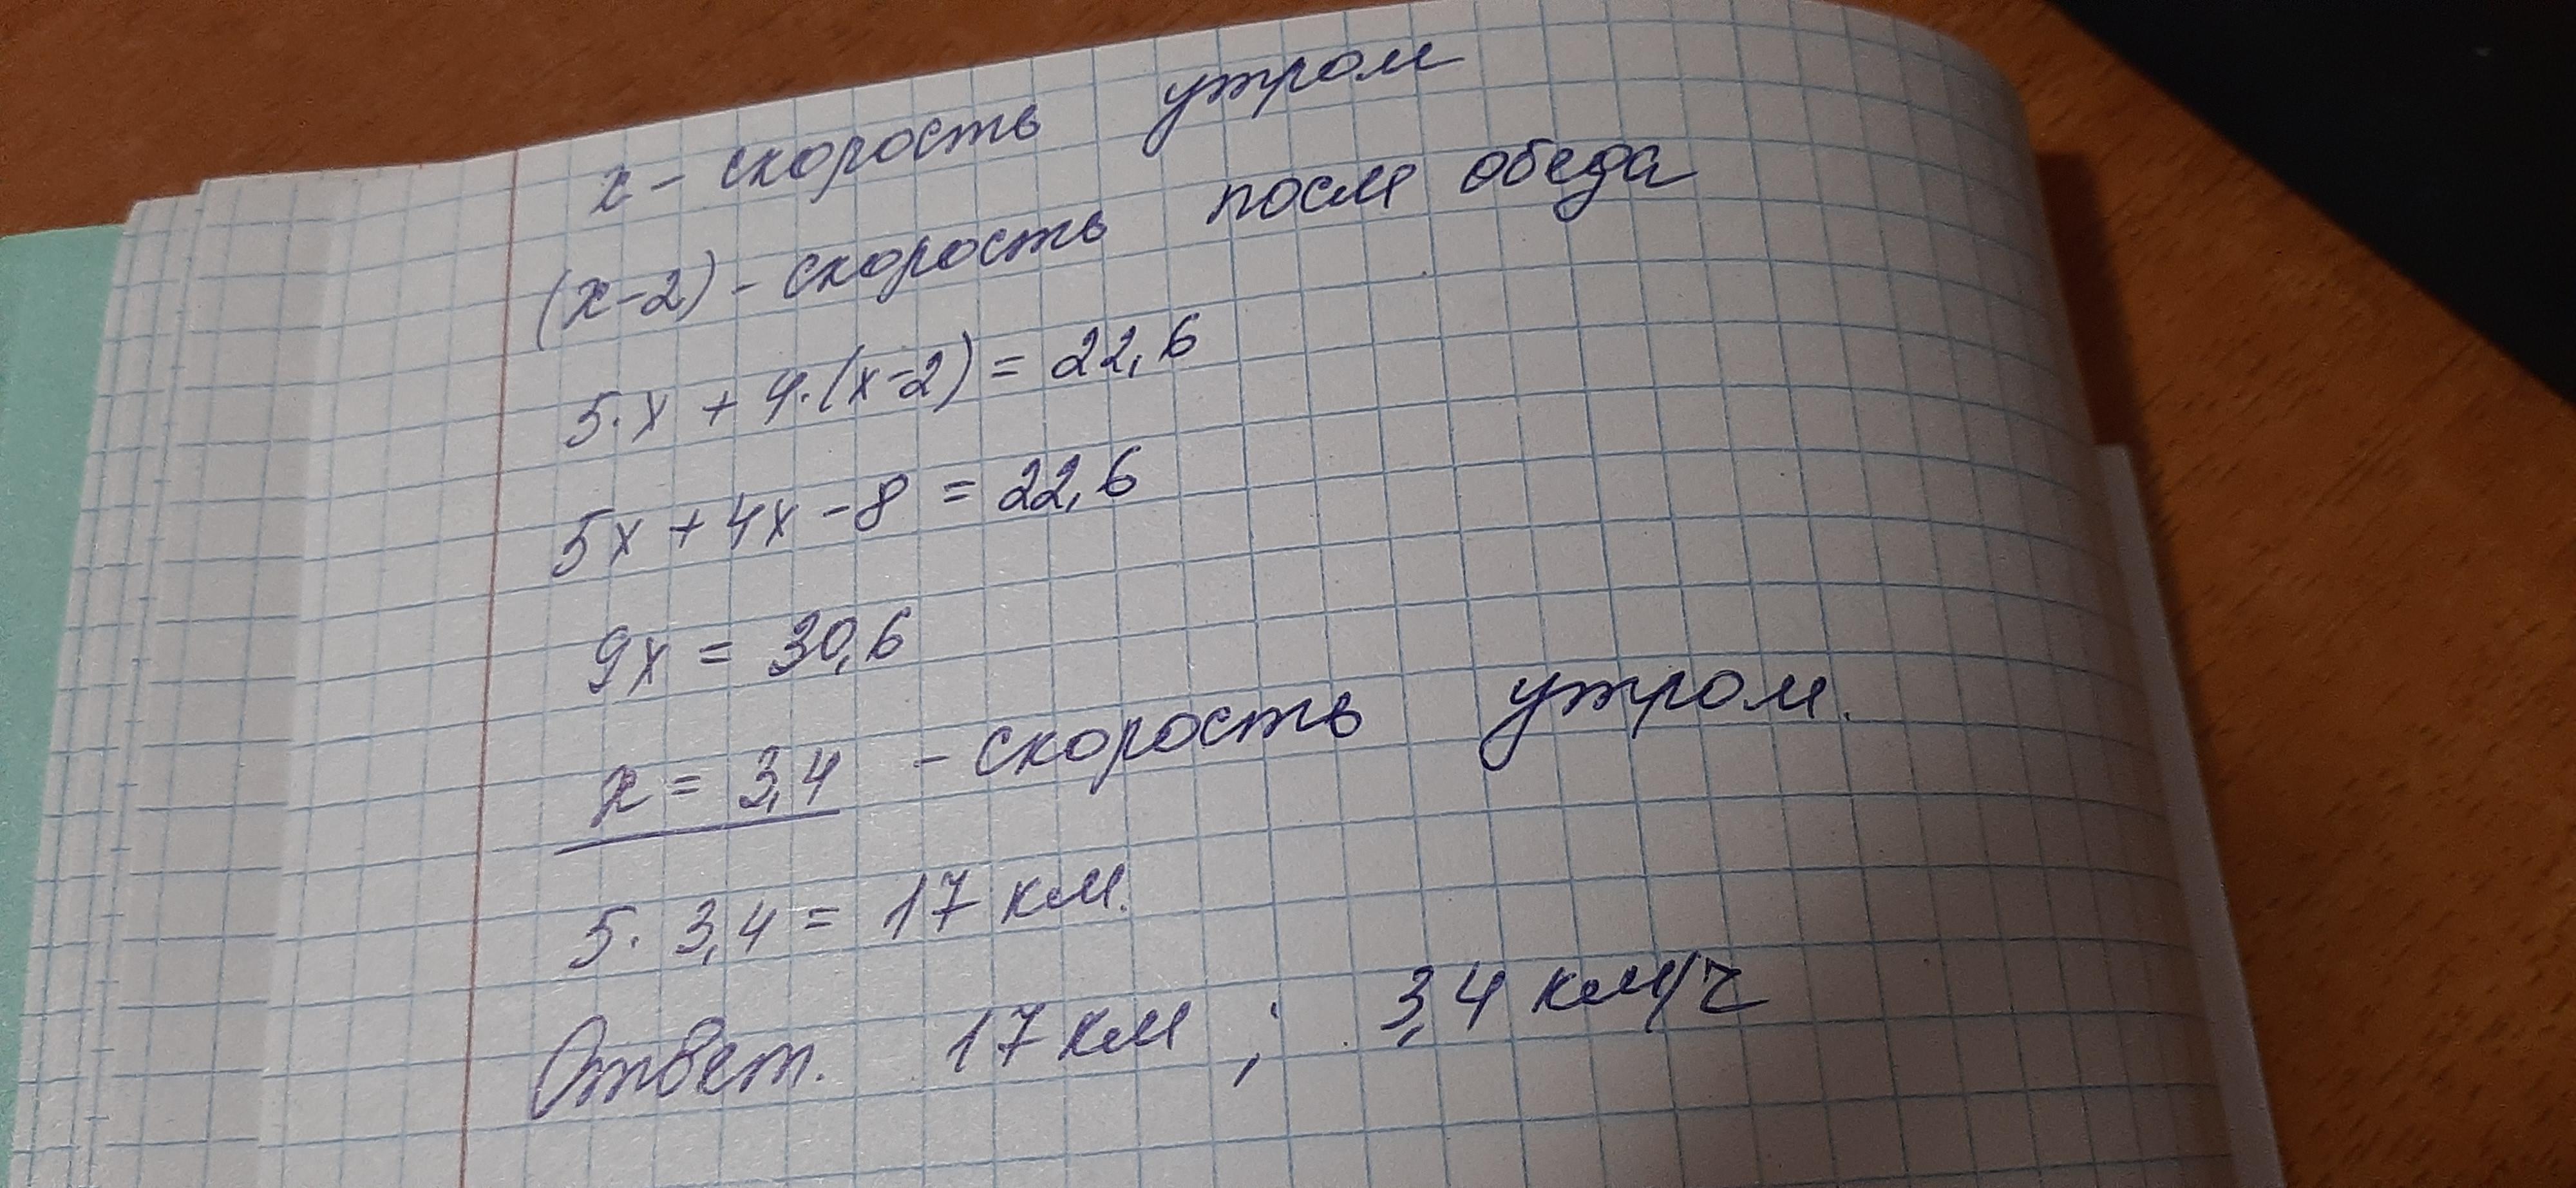 x - скорость утром
(x-2) - скорость после обеда
5·x + 4·(x-2) = 22,6
5x + 4x - 8 = 22,6
9x = 30,6
x = 3,4 - скорость утром.
5· 3,4 = 17 км.
Ответ. 17 км ; 3,4 км/ч